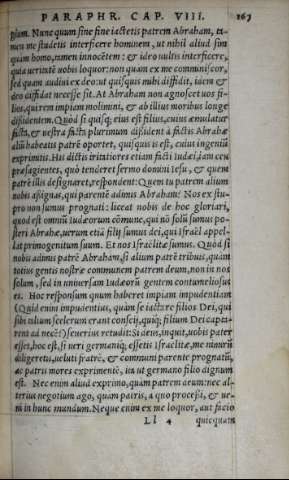 PARAPHR. CAP. VIII. 167
gium. Nunc quum sine fine iactetis patrem Abraham, ta-
men me studetis interficere hominem, ut nihil aliud sim
quàm homo, tamen innocētem: & ideo uultis interficere,
quia ueritatē uobis loquor: non quam ex me comminiscor,
sed quam audiui ex deo: ut quisquis mihi diffidit, idem &
deo diffidat necesse sit. At Abraham non agnoscet uos fi-
lios, qui rem impiam molimini, & ab illius moribus longe
dissidentem. Quòd si quisq; eius est filius, cuius æmulatur
facta, & uestra facta plurimum dissident à factis Abrahæ
aliū habeatis patrē oportet, quisquis is est, cuius ingeniū
exprimitis. His dictis irritatiores etiam facti Iudæi, iam ceu
præsagientes, quò tenderet sermo domini Iesu, & quem
patrē illis designaret, respondent: Quem tu patrem alium
nobis aßignas, qui parentē adimis Abraham? Nos ex stu-
pro non sumus prognati: liceat nobis de hoc gloriari,
quod est omniū Iudæorum cōmune, qui nō solū sumus po-
steri Abrahæ, uerum etiā filij sumus dei, qui Israël appel-
lat primogenitum suum. Et nos Israëlitæ sumus. Quòd si
nobis adimis patrē Abraham, si alium patrē tribuis, quàm
totius gentis nostræ communem patrem deum, non in nos
solum, sed in uniuersam Iudæorū gentem contumeliosus
es. Hoc responsum quum haberet impiam impudentiam
(Quid enim impudentius, quàm se iactare filios Dei, qui
sibi talium scelerum erant conscij, quàq; filium Dei capta-
rent ad necē?) seuerius retudit: Si deus, inquit, uobis pater
esset, hoc est, si ueri germaniq; essetis Israëlitæ, me nimirū
diligeretis, ueluti fratrē, & communi parente prognatū,
ac patris mores exprimentē, ita ut germano filio dignum
est. Nec enim aliud exprimo, quàm patrem meum: nec al-
terius negotium ago, quàm patris, à quo proceßi, & ue-
ni in hunc mundum. Neque enim ex me loquor, aut facio
Ll 4 quicquam